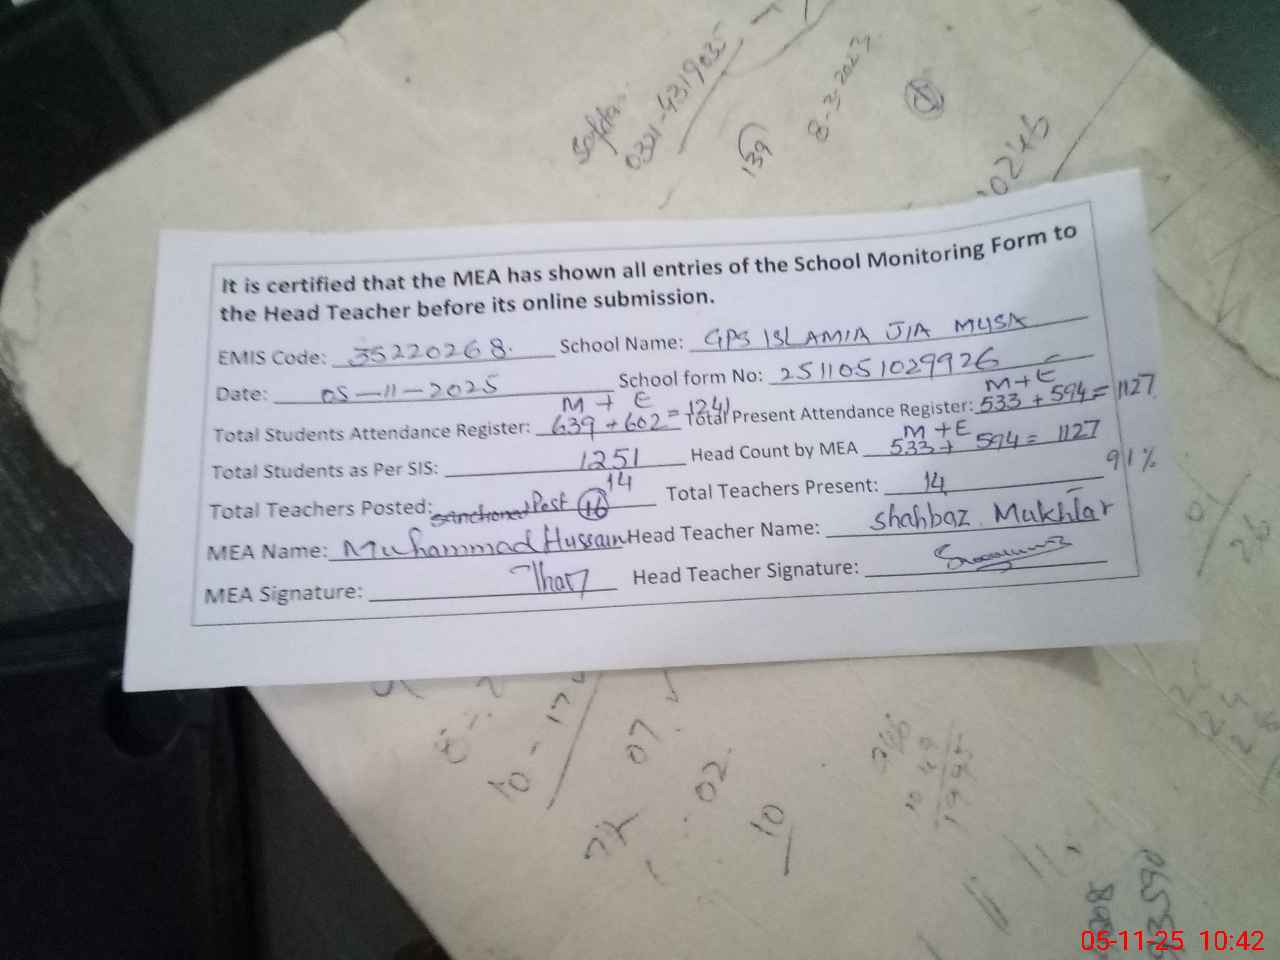 Safdar
0321-4319035
139
8-3-2023
0246
It is certified that the MEA has shown all entries of the School Monitoring Form to
the Head Teacher before its online submission.
EMIS Code: 35220268. School Name: GPS ISLAMIA JIA MUSA
Date: 05-11-2025 School form No: 2511051029926
M + E M+E
Total Students Attendance Register: 639 + 602 = 1241 Total Present Attendance Register: 533 + 594 = 1127
M + E
Total Students as Per SIS: 1251 Head Count by MEA 533 + 594 = 1127
91%
14
Total Teachers Posted: sanctioned Post 16 Total Teachers Present: 14
MEA Name: Muhammad Hussain Head Teacher Name: Shahbaz Mukhtar
MEA Signature: Head Teacher Signature:
10 - 17
07
02
10
05-11-25 10:42